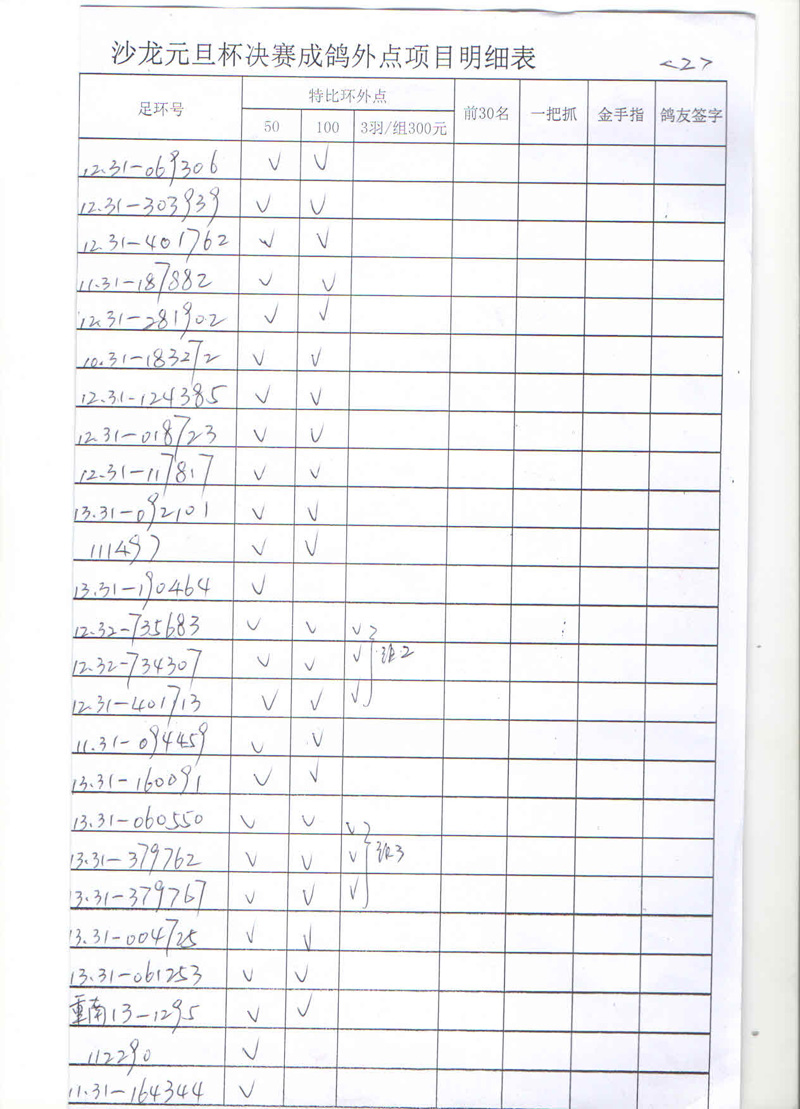 沙龙元旦杯决赛成鸽外点项目明细表 <2>
足环号 特比环外点 前30名 一把抓 金手指 鸽友签字
50 100 3羽/组300元
12.31-069306 √ √
12.31-303939 √ √
12.31-401762 √ √
11.31-187882 √ √
12.31-281902 √ √
10.31-183272 √ √
12.31-124385 √ √
12.31-018723 √ √
12.31-117817 √ √
13.31-092101 √ √
111497 √ √
13.31-190464 √
12.32-735683 √ √ √
12.32-734307 √ √ √ 组2
12.31-401713 √ √ √
11.31-094459 √ √
13.31-160091 √ √
13.31-060550 √ √ √
13.31-379762 √ √ √ 组3
13.31-379767 √ √ √
13.31-004725 √ √
13.31-061253 √ √
重南13-1295 √ √
112290 √
11.31-164344 √